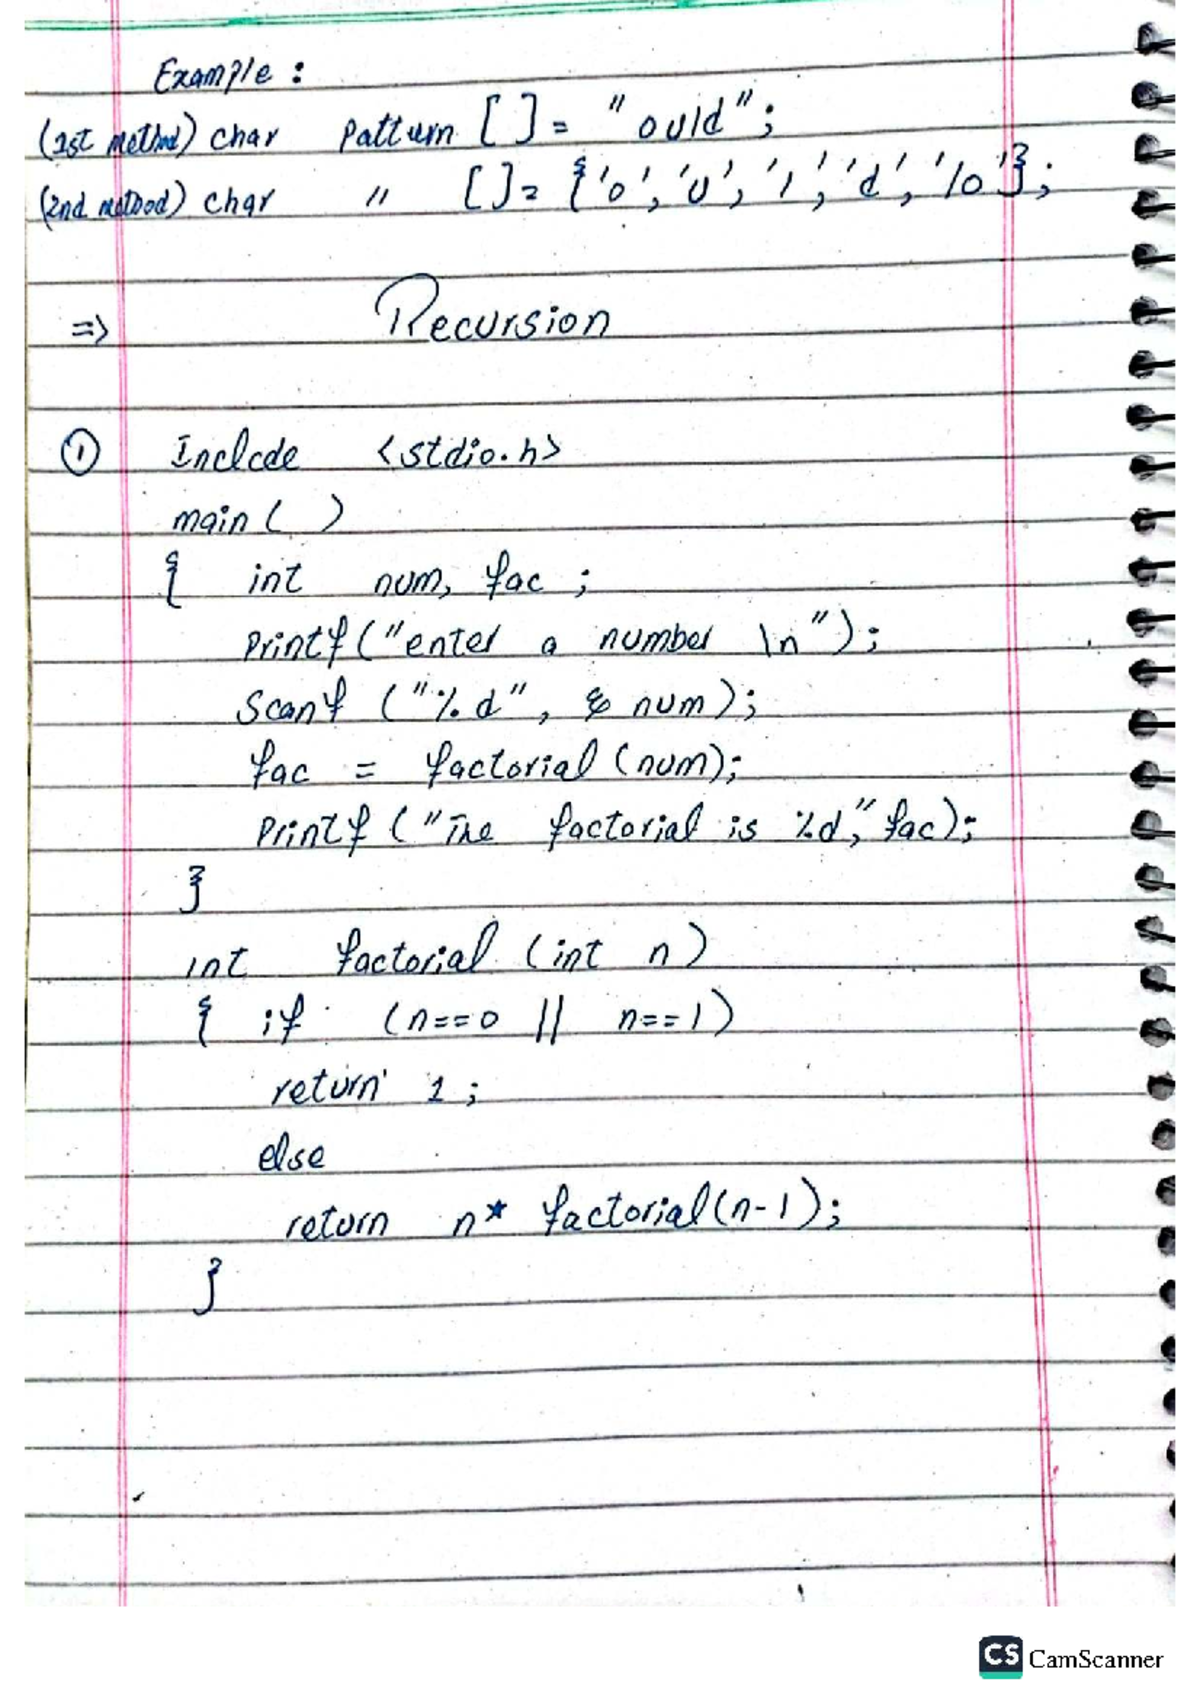 Example :
(1st method) char Pattern [ ] = "ould";
(2nd method) char " [ ] = {'o', 'u', 'l', 'd', '\0'};
=> Recursion
① Inclcde <stdio.h>
main ( )
{ int num, fac ;
Printf ("enter a number \n");
Scanf ("%d", & num);
fac = factorial (num);
Printf ("The factorial is %d," fac);
}
int factorial (int n)
{ if (n==0 || n==1)
return 1 ;
else
return n* factorial (n-1);
}
CS CamScanner